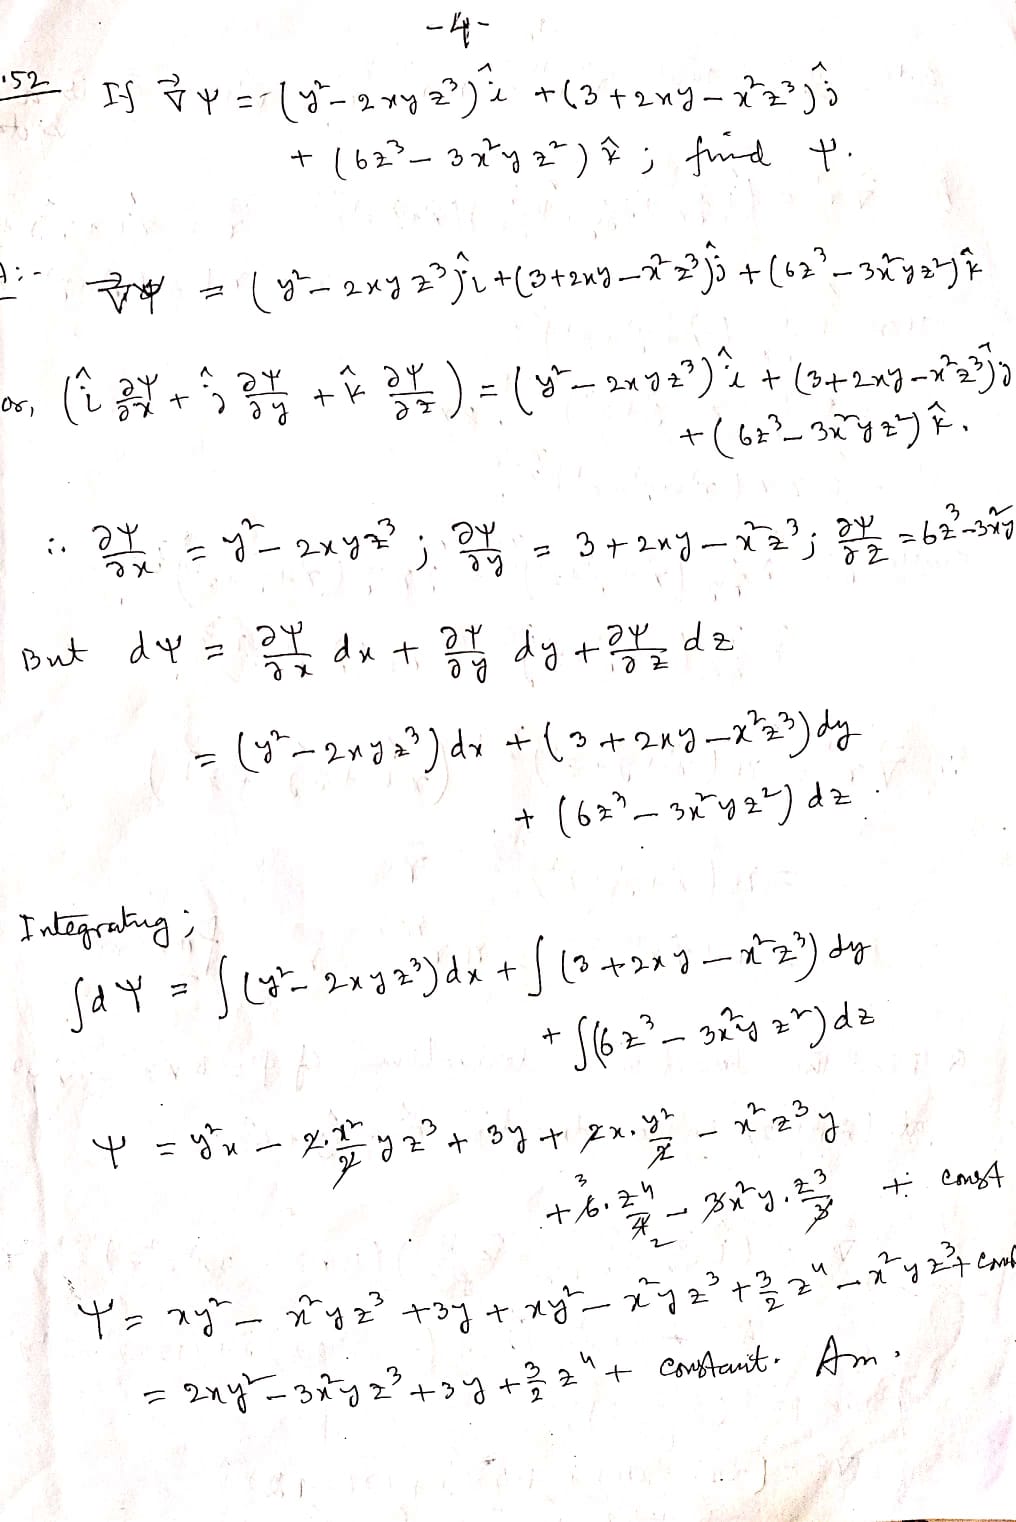 -4-
.52 If ∇⃗ψ = (y² - 2xyz³)î + (3 + 2xy - x²z³)ĵ
+ (6z³ - 3x²yz²)k̂ ; find ψ.
A:- ∇⃗ψ = (y² - 2xyz³)î + (3+2xy - x²z³)ĵ + (6z³ - 3x²yz²)k̂
or, (î ∂ψ/∂x + ĵ ∂ψ/∂y + k̂ ∂ψ/∂z) = (y² - 2xyz³)î + (3+2xy - x²z³)ĵ
+ (6z³ - 3x²yz²)k̂.
∴ ∂ψ/∂x = y² - 2xyz³ ; ∂ψ/∂y = 3 + 2xy - x²z³ ; ∂ψ/∂z = 6z³ - 3x²y
But dψ = ∂ψ/∂x dx + ∂ψ/∂y dy + ∂ψ/∂z dz
= (y² - 2xyz³) dx + (3 + 2xy - x²z³) dy
+ (6z³ - 3x²yz²) dz.
Integrating ;
∫dψ = ∫(y² - 2xyz³) dx + ∫(3 + 2xy - x²z³) dy
+ ∫(6z³ - 3x²yz²) dz
ψ = y²x - 2.x²/2 yz³ + 3y + 2x.y²/2 - x²z³y
+ 6.z⁴/4 - 3x²y.z³/3 + const
ψ = xy² - x²yz³ + 3y + xy² - x²yz³ + 3/2 z⁴ - x²yz³ + const
= 2xy² - 3x²yz³ + 3y + 3/2 z⁴ + constant. Ans.